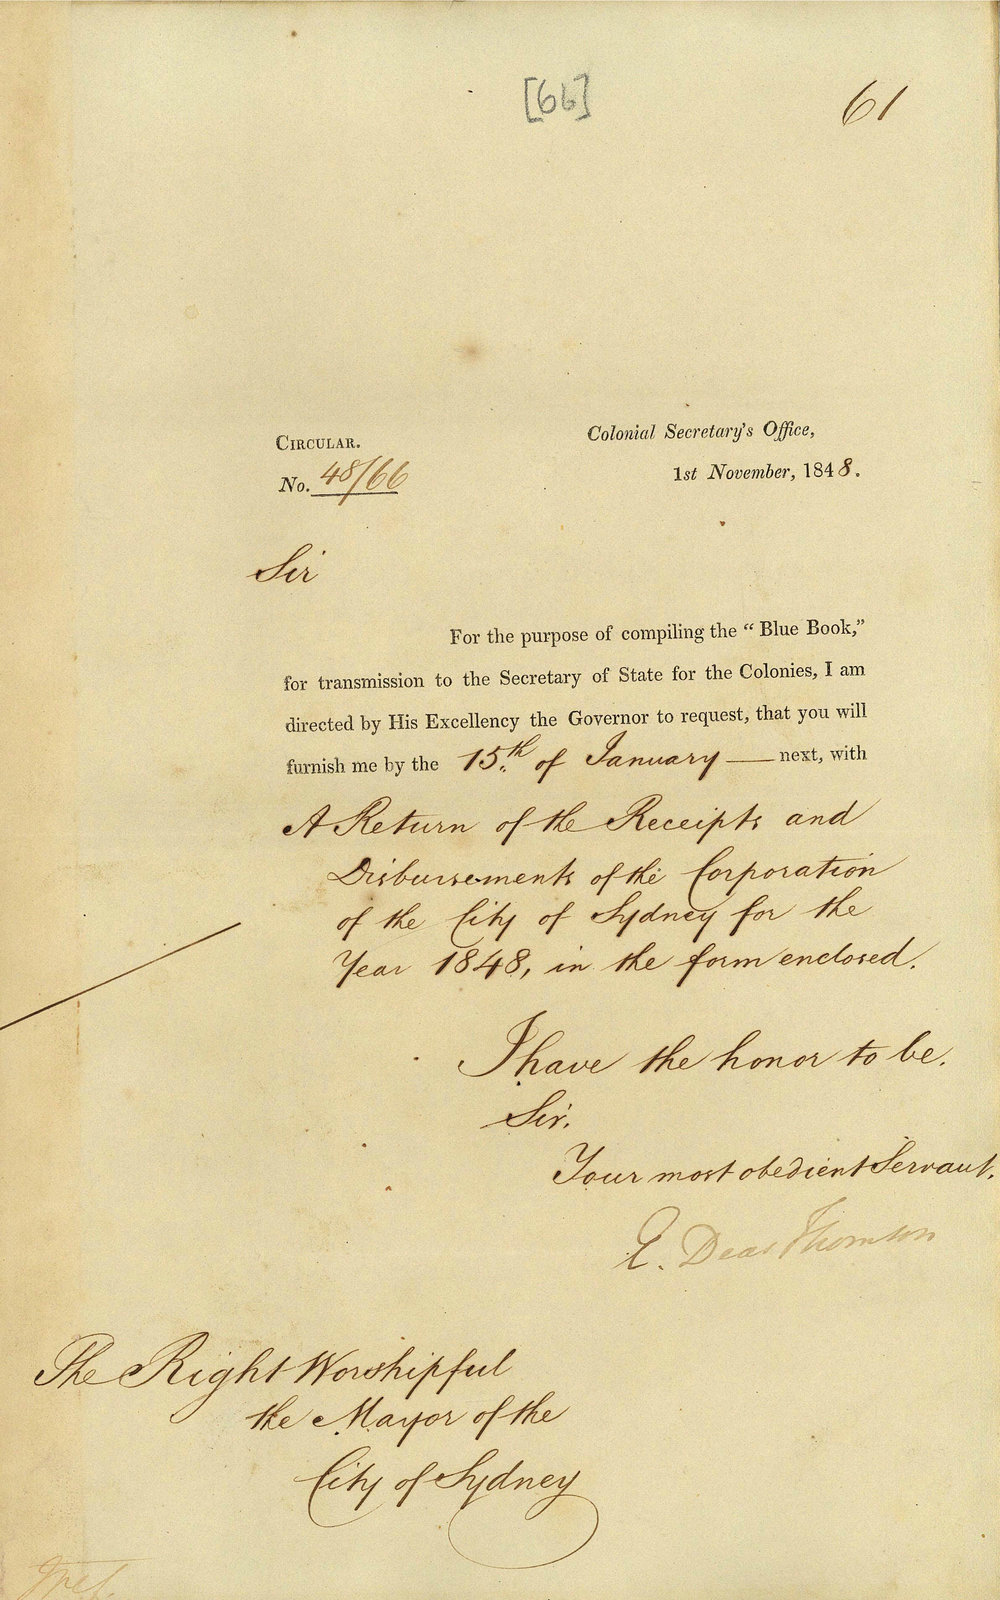 [66]
61
CIRCULAR.
No. 48/66
Colonial Secretary's Office,
1st November, 1848.
Sir
For the purpose of compiling the "Blue Book,"
for transmission to the Secretary of State for the Colonies, I am
directed by His Excellency the Governor to request, that you will
furnish me by the 15.th of January — next, with
A Return of the Receipts and
Disbursements of the Corporation
of the City of Sydney for the
Year 1848, in the form enclosed.
I have the honor to be.
Sir.
Your most obedient Servant.
E. Deas Thomson
The Right Worshipful
the Mayor of the
City of Sydney